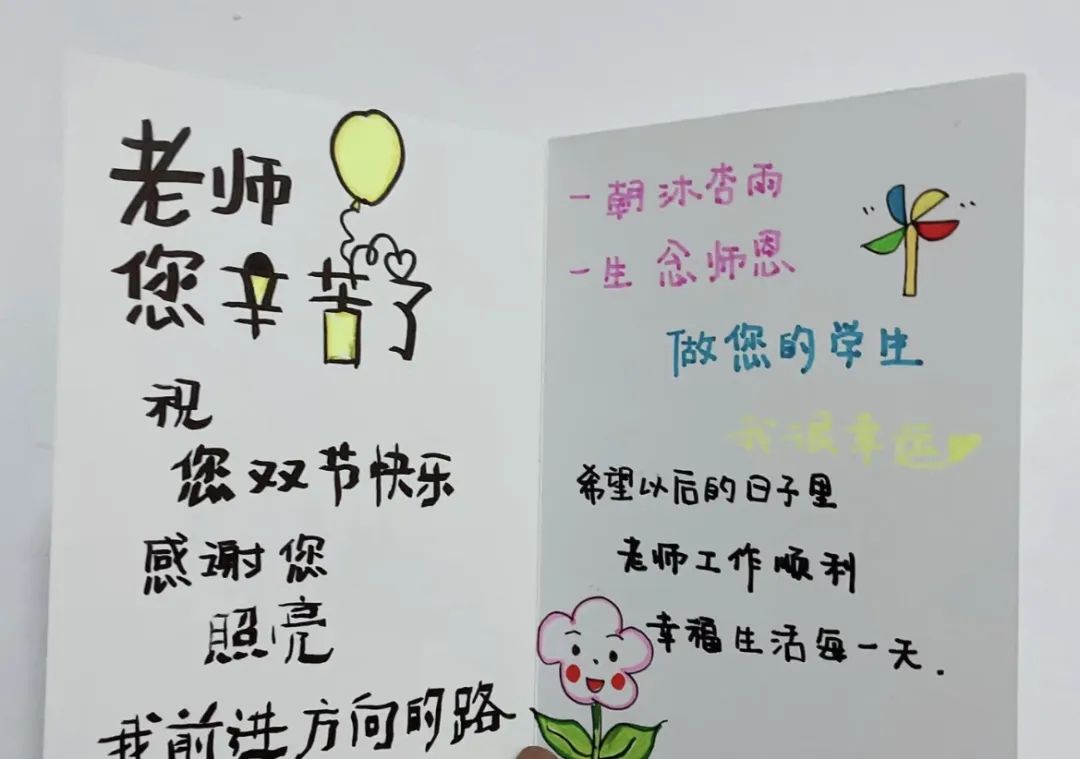 老师
您辛苦了
祝
您双节快乐
感谢您
照亮
我前进方向的路
一朝沐杏雨
一生念师恩
做您的学生
我很幸运
希望以后的日子里
老师工作顺利
幸福生活每一天.